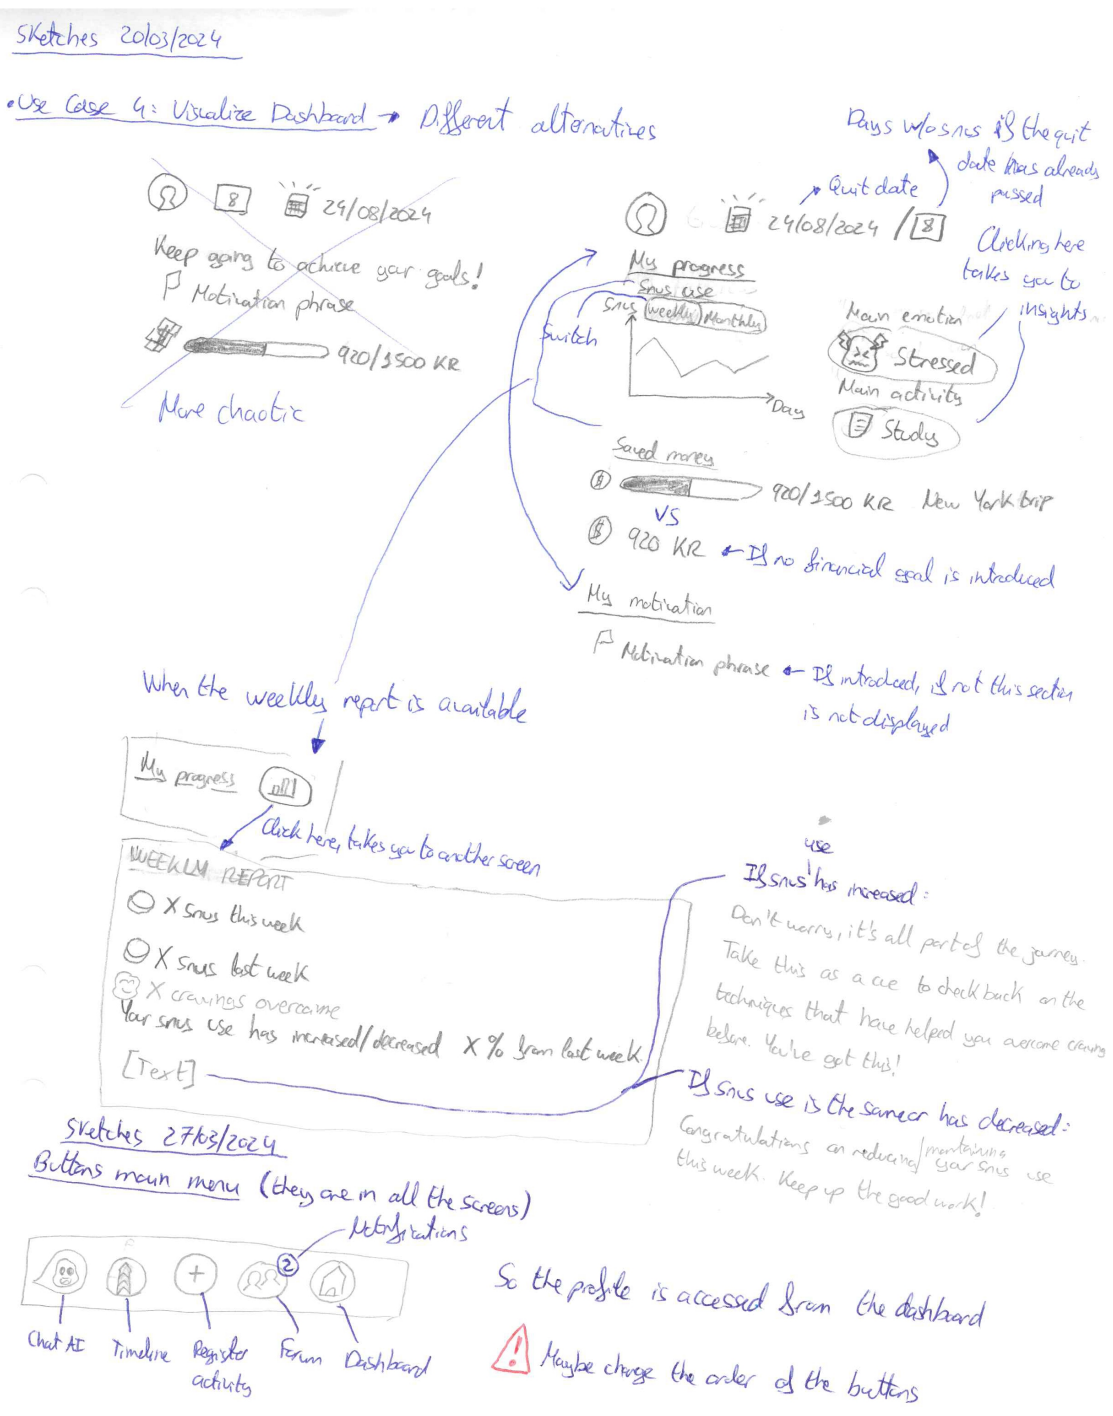 Sketches 20/03/2024
• Use Case 4: Visualize Dashboard → Different alternatives
8
24/08/2024
Keep going to achieve your goals!
Motivation phrase
920/1500 KR
More chaotic
Days w/o snus if the quit
date has already
passed
Quit date
24/08/2024 / 8
Clicking here
takes you to
insights
My progress
Snus use
Snus
Weekly
Monthly
Switch
Day
Main emotion
Stressed
Main activity
Study
Saved money
$ 920/1500 KR New York trip
VS
$ 920 KR ← If no financial goal is introduced
My motivation
Motivation phrase ← If introduced, if not this section
is not displayed
When the weekly report is available
My progress
Click here, takes you to another screen
WEEKLY REPORT
X snus this week
X snus last week
X cravings overcome
Your snus use has increased/decreased X % from last week.
[Text]
If snus use has increased:
Don't worry, it's all part of the journey.
Take this as a cue to check back on the
techniques that have helped you overcome craving
before. You've got this!
If snus use is the same or has decreased:
Congratulations on reducing/maintaining your snus use
this week. Keep up the good work!
Sketches 27/03/2024
Buttons main menu (they are in all the screens)
Notifications
2
+
Chat AI
Timeline
Register
activity
Forum
Dashboard
So the profile is accessed from the dashboard
! Maybe change the order of the buttons